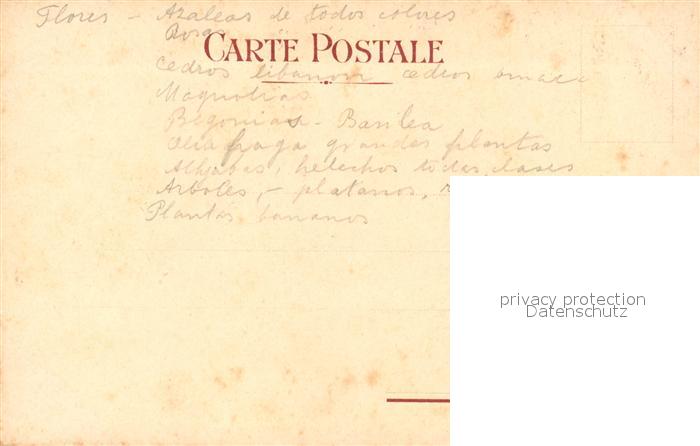 Flores - Azaleas de todos colores
Rosa
CARTE POSTALE
Cedros libanon cedros
Magnolias
Begonias - Basilea
fraga grandes plantas
helechos todas clases
Arboles, - platanos,
Plantas bananos
privacy protection
Datenschutz